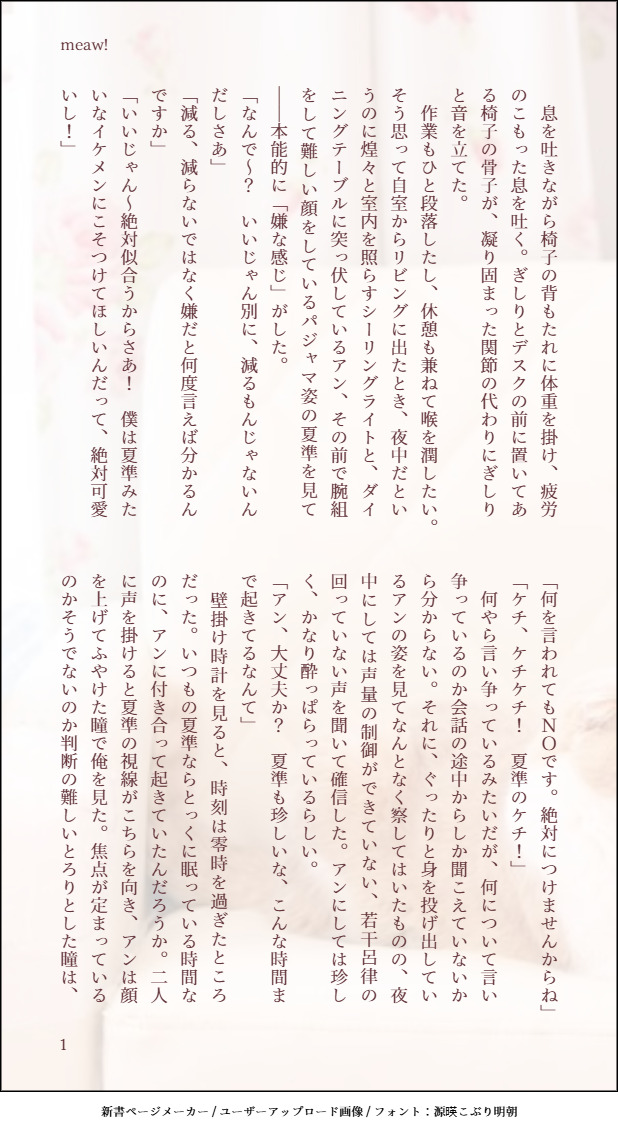 meaw!
　息を吐きながら椅子の背もたれに体重を掛け、疲労
のこもった息を吐く。ぎしりとデスクの前に置いてあ
る椅子の骨子が、凝り固まった関節の代わりにぎしり
と音を立てた。
　作業もひと段落したし、休憩も兼ねて喉を潤したい。
そう思って自室からリビングに出たとき、夜中だとい
うのに煌々と室内を照らすシーリングライトと、ダイ
ニングテーブルに突っ伏しているアン、その前で腕組
をして難しい顔をしているパジャマ姿の夏準を見て
――本能的に「嫌な感じ」がした。
「なんで～？　いいじゃん別に、減るもんじゃないん
だしさあ」
「減る、減らないではなく嫌だと何度言えば分かるん
ですか」
「いいじゃん～絶対似合うからさあ！　僕は夏準みた
いなイケメンにこそつけてほしいんだって、絶対可愛
いし！」
「何を言われてもＮＯです。絶対につけませんからね」
「ケチ、ケチケチ！　夏準のケチ！」
　何やら言い争っているみたいだが、何について言い
争っているのか会話の途中からしか聞こえていないか
ら分からない。それに、ぐったりと身を投げ出してい
るアンの姿を見てなんとなく察してはいたものの、夜
中にしては声量の制御ができていない、若干呂律の
回っていない声を聞いて確信した。アンにしては珍し
く、かなり酔っぱらっているらしい。
「アン、大丈夫か？　夏準も珍しいな、こんな時間ま
で起きてるなんて」
　壁掛け時計を見ると、時刻は零時を過ぎたところ
だった。いつもの夏準ならとっくに眠っている時間な
のに、アンに付き合って起きていたんだろうか。二人
に声を掛けると夏準の視線がこちらを向き、アンは顔
を上げてふやけた瞳で俺を見た。焦点が定まっている
のかそうでないのか判断の難しいとろりとした瞳は、
1
新書ページメーカー / ユーザーアップロード画像 / フォント：源暎こぶり明朝